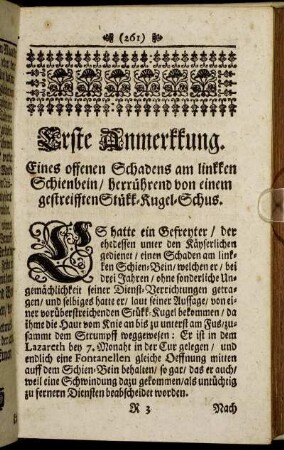 (261)
Erste Anmerkkung.
Eines offenen Schadens am linkken
Schienbein / herrührend von einem
gestreifften Stükk-Kugel-Schus.
ES hatte ein Gefreyter / der
ehedessen unter den Käyserlichen
gedienet / einen Schaden am link-
ken Schien-Bein / welchen er / bei
drei Jahren / ohne sonderliche Un-
gemächlichkeit seiner Dienst-Verrichtungen getra-
gen / und selbiges hatte er / laut seiner Aussage / von ei-
ner vorüberstreichenden Stükk-Kugel bekommen / da
ihme die Haut vom Knie an bis zu unterst am Fus / zu-
sammt dem Strumpff weggewesen: Er ist in dem
Lazareth bey 7. Monaht in der Cur gelegen / und
endlich eine Fontanellen gleiche Oeffnung mitten
auff dem Schien-Bein behalten / so gar / das er auch /
weil eine Schwindung dazu gekommen / als untüchtig
zu fernern Diensten beabscheidet worden.
R 3 Nach